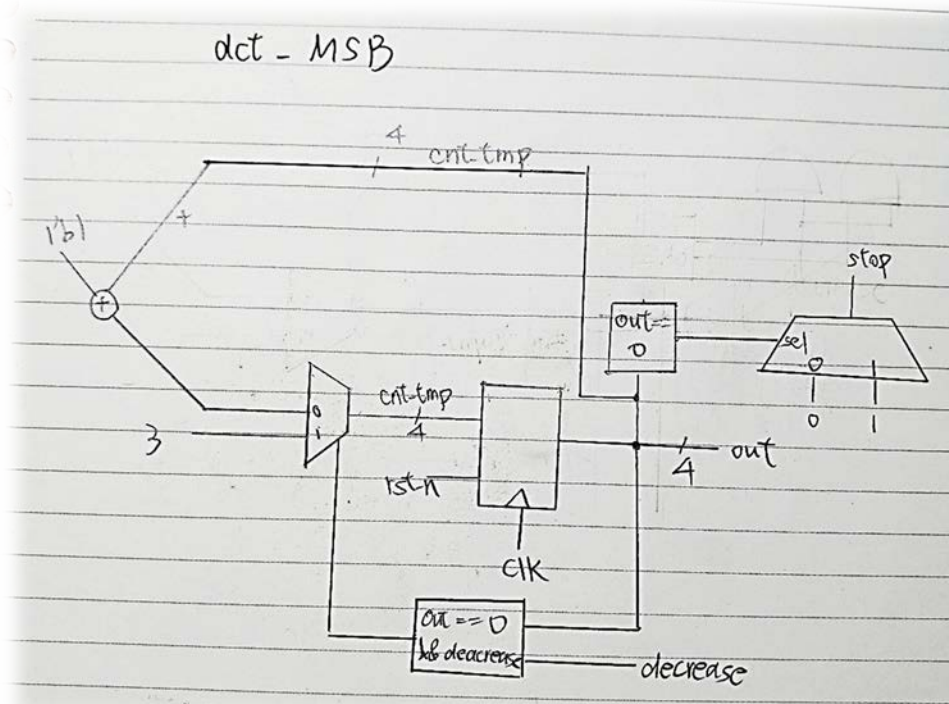 dct - MSB
4
cnt-tmp
+
1'b1
+
stop
out==
0
sel
0
1
0
1
0
1
3
cnt-tmp
4
rst-n
CLK
4
out
out == 0
&& deacrease
decrease